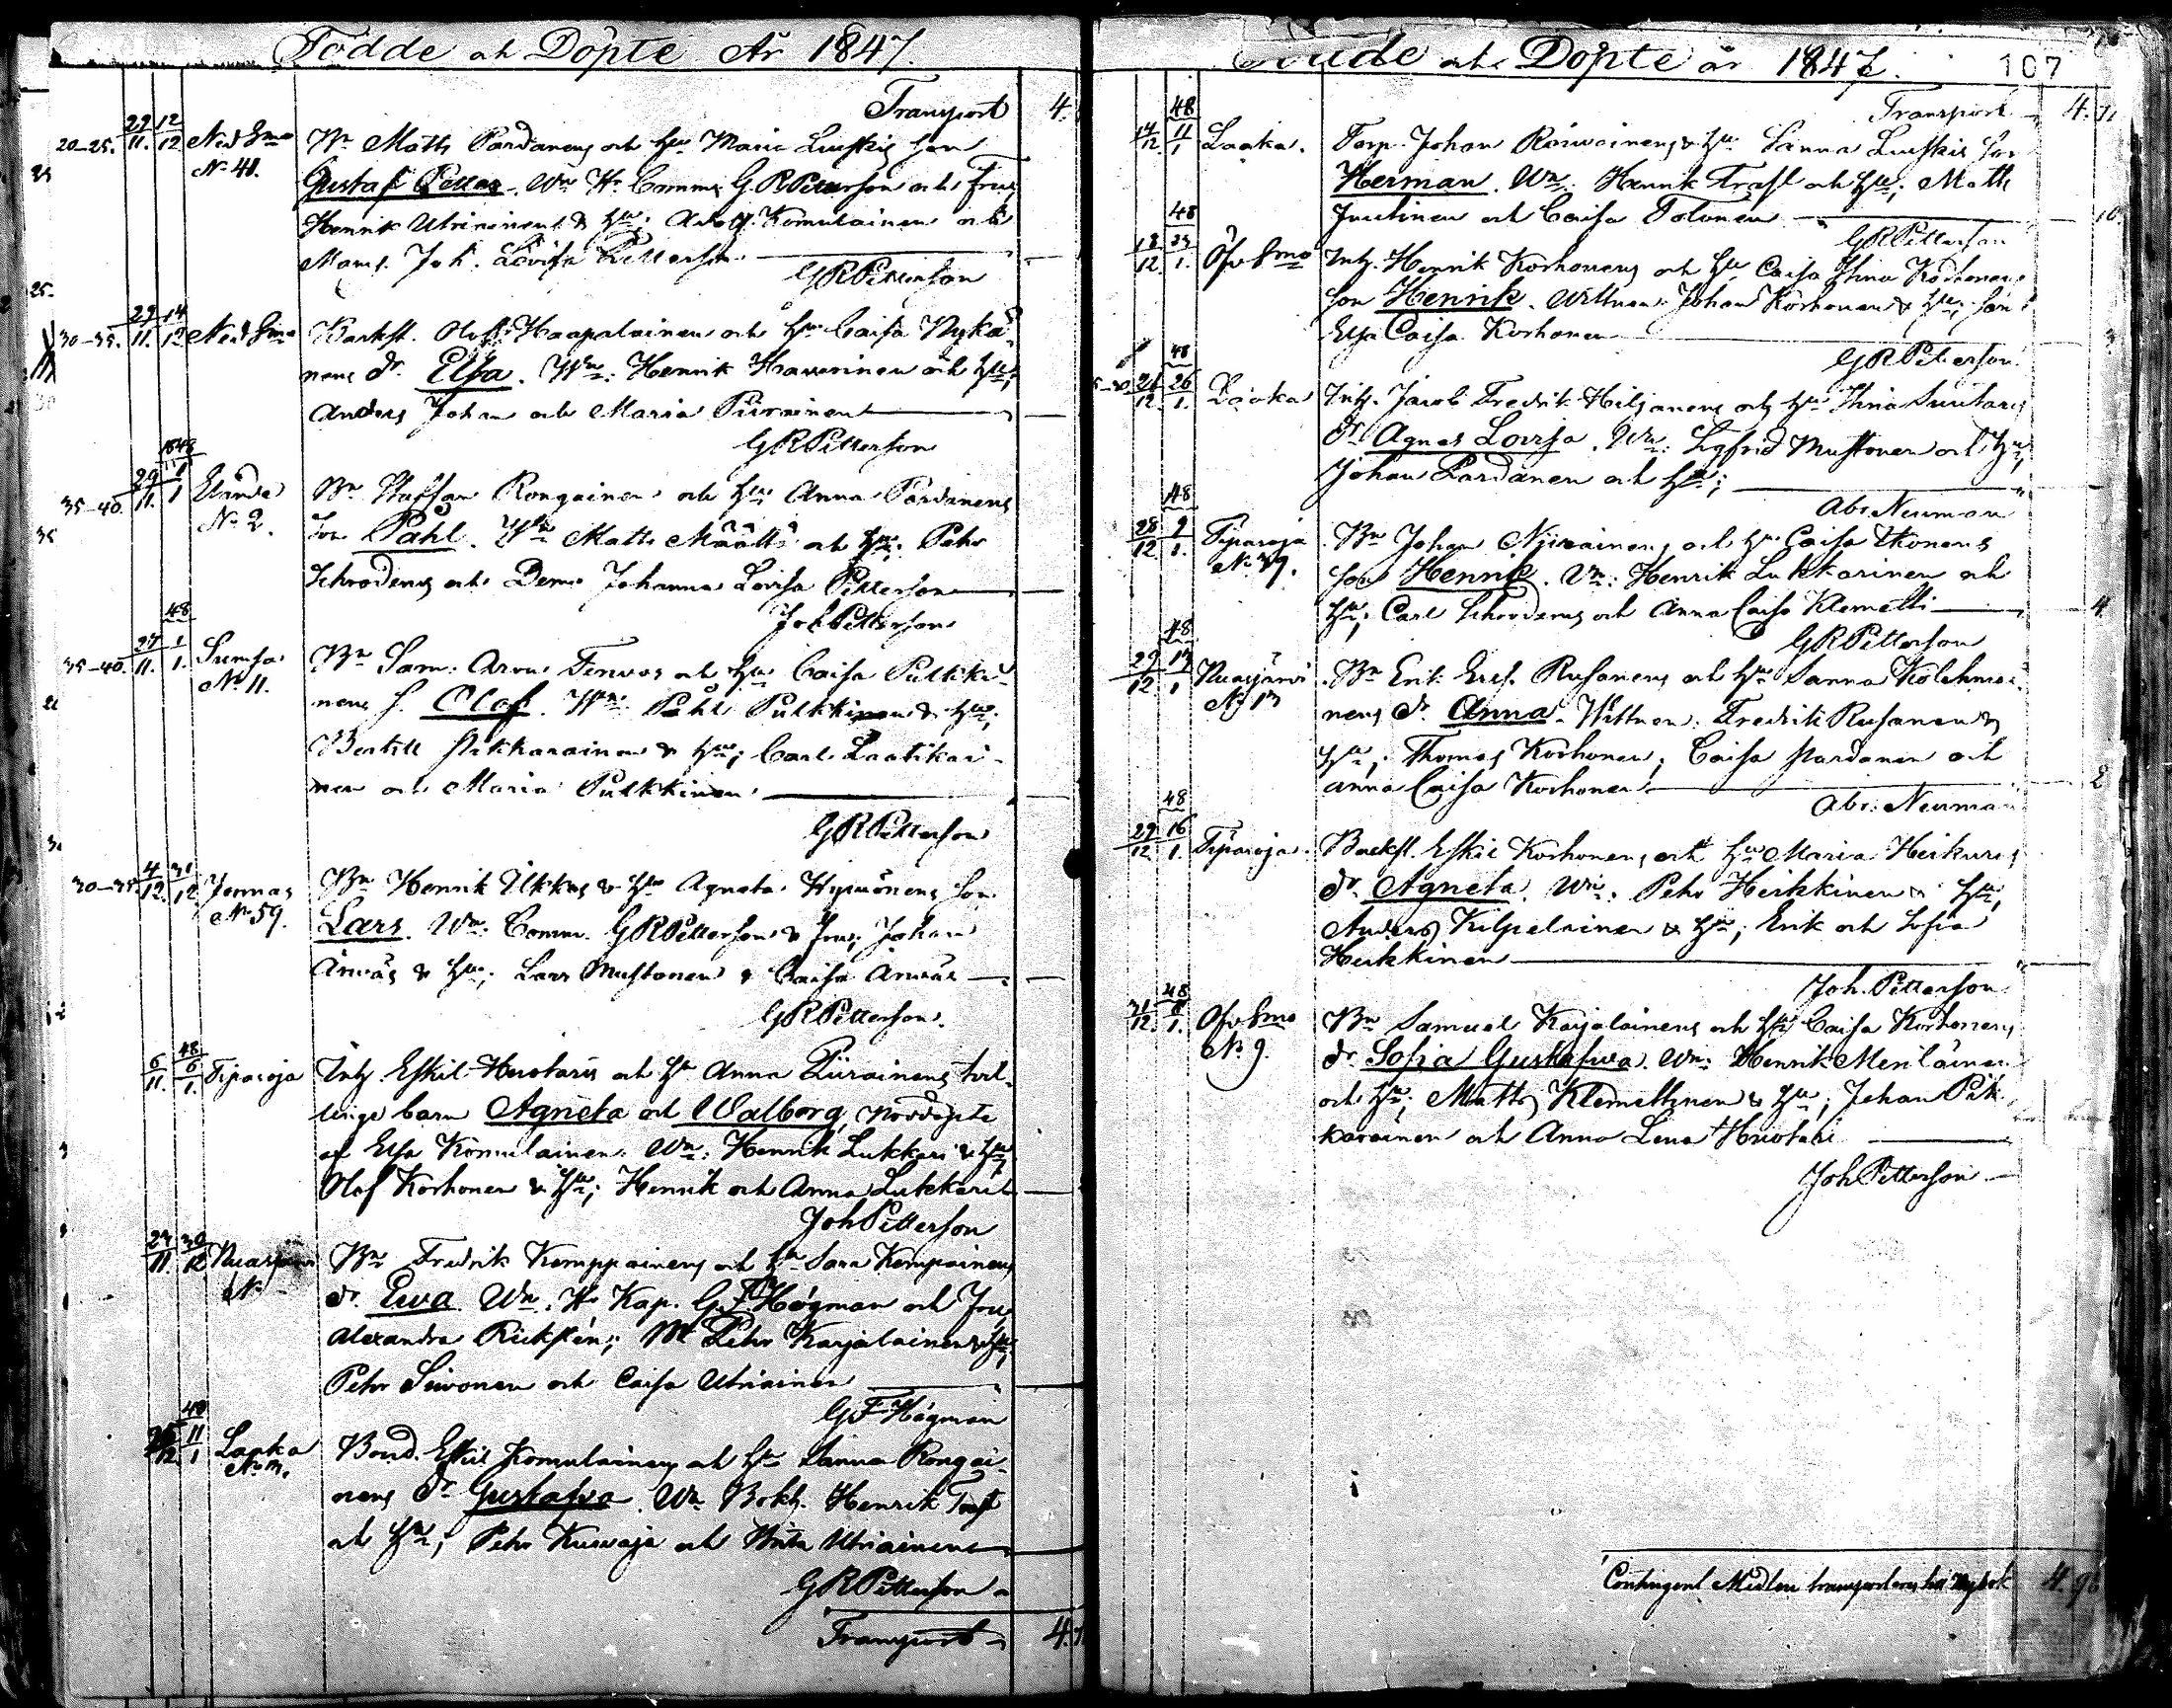 Födde och Döpte År 1847.
Transport 4.
20-25. 29/11. 12/12 Ned Smo Bn Matts Pardanens och Hu Maria Luskis son
No 41. Gustaf Petter. Wn Hr Comm. G R Petterson och Fru;
Henrik Utriainens & Hu; Adolf Komulainen och
Mams. Joh. Lovisa Petterson
G R Petterson
30-35. 29/11. 14/12 Ned Smo Backst. Olof Haapalainen och Hu Caisa Nykä-
nens dr. Elsa. Wn: Henrik Hawerinen och Hu;
Anders Johan och Maria Piirainen
G R Petterson
1848
35-40. 29/11. 1/1 No 2. Bn Staffan Rongainen och Hu Anna Pardanens
son Påhl. Wn Matts Määttä och Hu; Pehr
Schroderus och Dem. Johanna Lovisa Petterson
Joh Petterson
48
35-40. 27/11. 1/1. Sumsa Bn Sam: Aron Terwos och Hu Caisa Pulkki-
No 11. nens s. Olof. Wn: Påhl Pulkkinen & Hu;
Bertill Pikkarainen & Hu; Carl Laatikai-
nen och Maria Pulkkinen
G R Petterson
30-35 4/12. 31/12. Jormas Bn Henrik Ukkus & Hu Agneta Hywönens son
No 59. Lars. Wn: Comm. G R Petterson & Fru; Johan
Änäs & Hu; Lars Mustonen & Caisa
G R Petterson.
48
6/11. 6/1. Tiparoja Inh. Eskil Huotaris och Hu Anna Piirainens twil-
linge barn Agneta och Walborg, nöddöpta
af Elsa Komulainen. Wn: Henrik Lukkari & Hu;
Olof Korhonen & Hu; Henrik och Anna Lukkari
Joh Petterson
23/11. 30/12 Nuasjärvi Bn Fredrik Kemppainens och Hu Sara Kempainens
No dr. Ewa. Wn. Hr Kap. G. F. Högman och Fru
Alexandra Rickstén; Pehr Karjalainen & Hu;
Pehr Siwonen och Caisa Utriainen
G F Högman
48
11/1 Laaka Bond. Eskil Komulainens och Hu Sanna Rongai-
nens dr Gustafva. Wn Bokh. Henrik Trast
och Hu; Pehr Kuwaja och Utriainen
G R Petterson
Transport 4.
Födde och Döpte år 1847. 107
Transport 4.
48
14/12. 11/1 Laaka. Torp. Johan Roiwainens & Hu Sanna Luskis son
Herman. Wn: Henrik Trast och Hu; Matts
Juutinen och Caisa Tolonen 10.
G R Petterson
48
18/12. 23/1. Öfv Smo Inh. Henrik Korhonens och Hu Caisa Stina Korhonens
son Henrik. Wittnen: Johan Korhonen & Hu;
Elsa Caisa Korhonen
G R Petterson.
48
21/12. 26/1. Laaka Inh. Jacob Fredrik Hiljanens och Hu Stina Suutaris
dr Agnes Lovisa. Wn: Sigfrid Mustonen och Hu;
Johan Pardanen och Hu;
Abr: Neuman
48
28/12. 9/1. Tiparoja Bn Johan och Hu Caisa Ikonens
No 39. son Henrik. Wn: Henrik Lukkarinen och
Hu; Carl Schroderus och Anna Caisa Klemetti 4
G R Petterson
48
29/12 Nuasjärvi Bn Erik Ers. Rusanens och Hu Sanna Kolehmai-
No 13 nens dr. Anna. Wittnen: Fredrik Rusanen &
Hu; Thomas Korhonen; Caisa Pardanen och
Anna Caisa Korhonen 2
Abr: Neuman
48
29/12. 16/1. Tiparoja. Backst. Eskil Korhonens och Hu Maria Heikuris
dr. Agneta. Wn: Pehr Heikkinen & Hu;
Anders Kilpelainen & Hu; Erik och Sofia
Heikkinen
Joh. Petterson
48
31/12. 8/1. Öfv Smo Bn Samuel Karjalainens och Hu Caisa Korhonens
No 9. dr Sofia Gustafva. Wn: Henrik Meriläinen
och Hu; Matts Klemettinen & Hu; Johan Pik-
karainen och Anna Lena Huotari
Joh Petterson
Contingent Medlen transporteras till Ny bok 4. 98